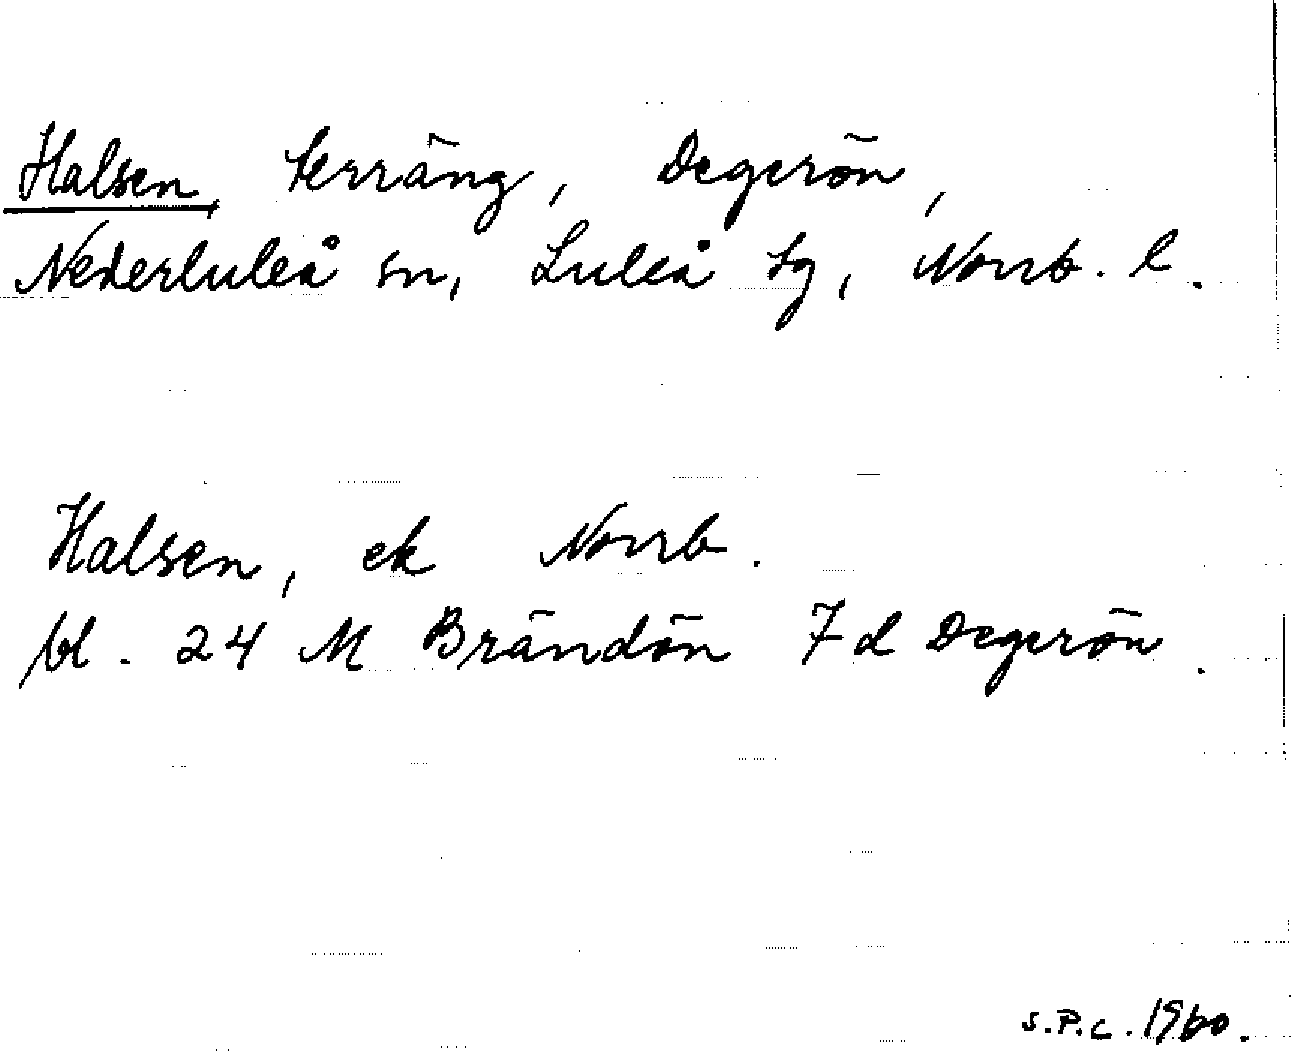 Halsen, terräng, Degerön,
Nederluleå sn, Luleå tg, Norrb. l.
Halsen, ek Norrb.
bl. 24 M Brändön 7 d Degerön.
S.P.C. 1960.